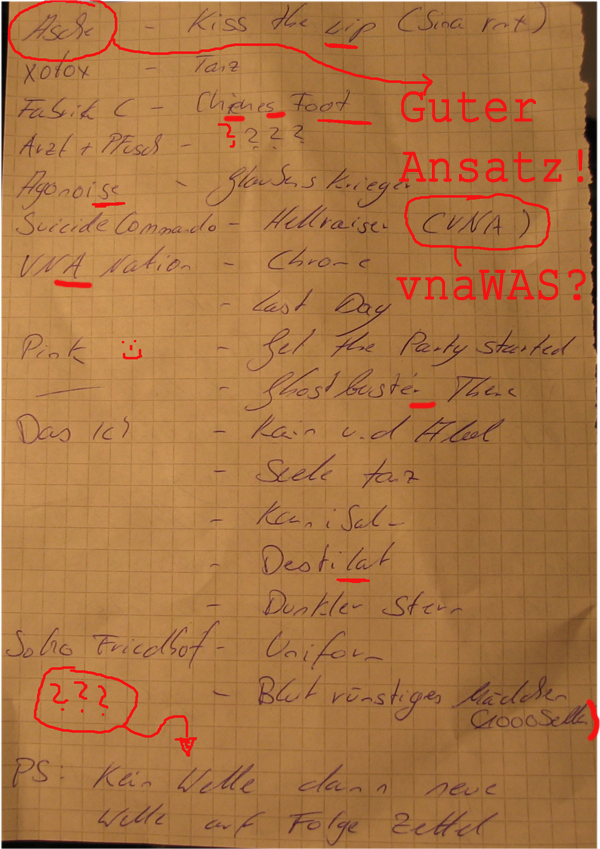 Asche - Kiss the Lip (Sina rmt)
Xotox - Tanz
Guter
Fabrik C - Chienes Foot
Arzt + Pfusch - ? ? ? ?
Ansatz!
Agonoise - Glaubens Krieger
Suicide Commando - Hellraiser (VNA)
VNA Nation - Chrome
vnaWAS?
- Last Day
Pink - Get the Party started
- Ghostbuster Theme
Das Ich - Kain und Abel
- Seele tanz
- Kannibale
- Destilat
- Dunkler Stern
Soko Friedhof - Uniform
???
- Blut rünstiges Mädchen
(1000 Seelen)
PS: Kein Welle dann neue
Welle auf Folge Zettel